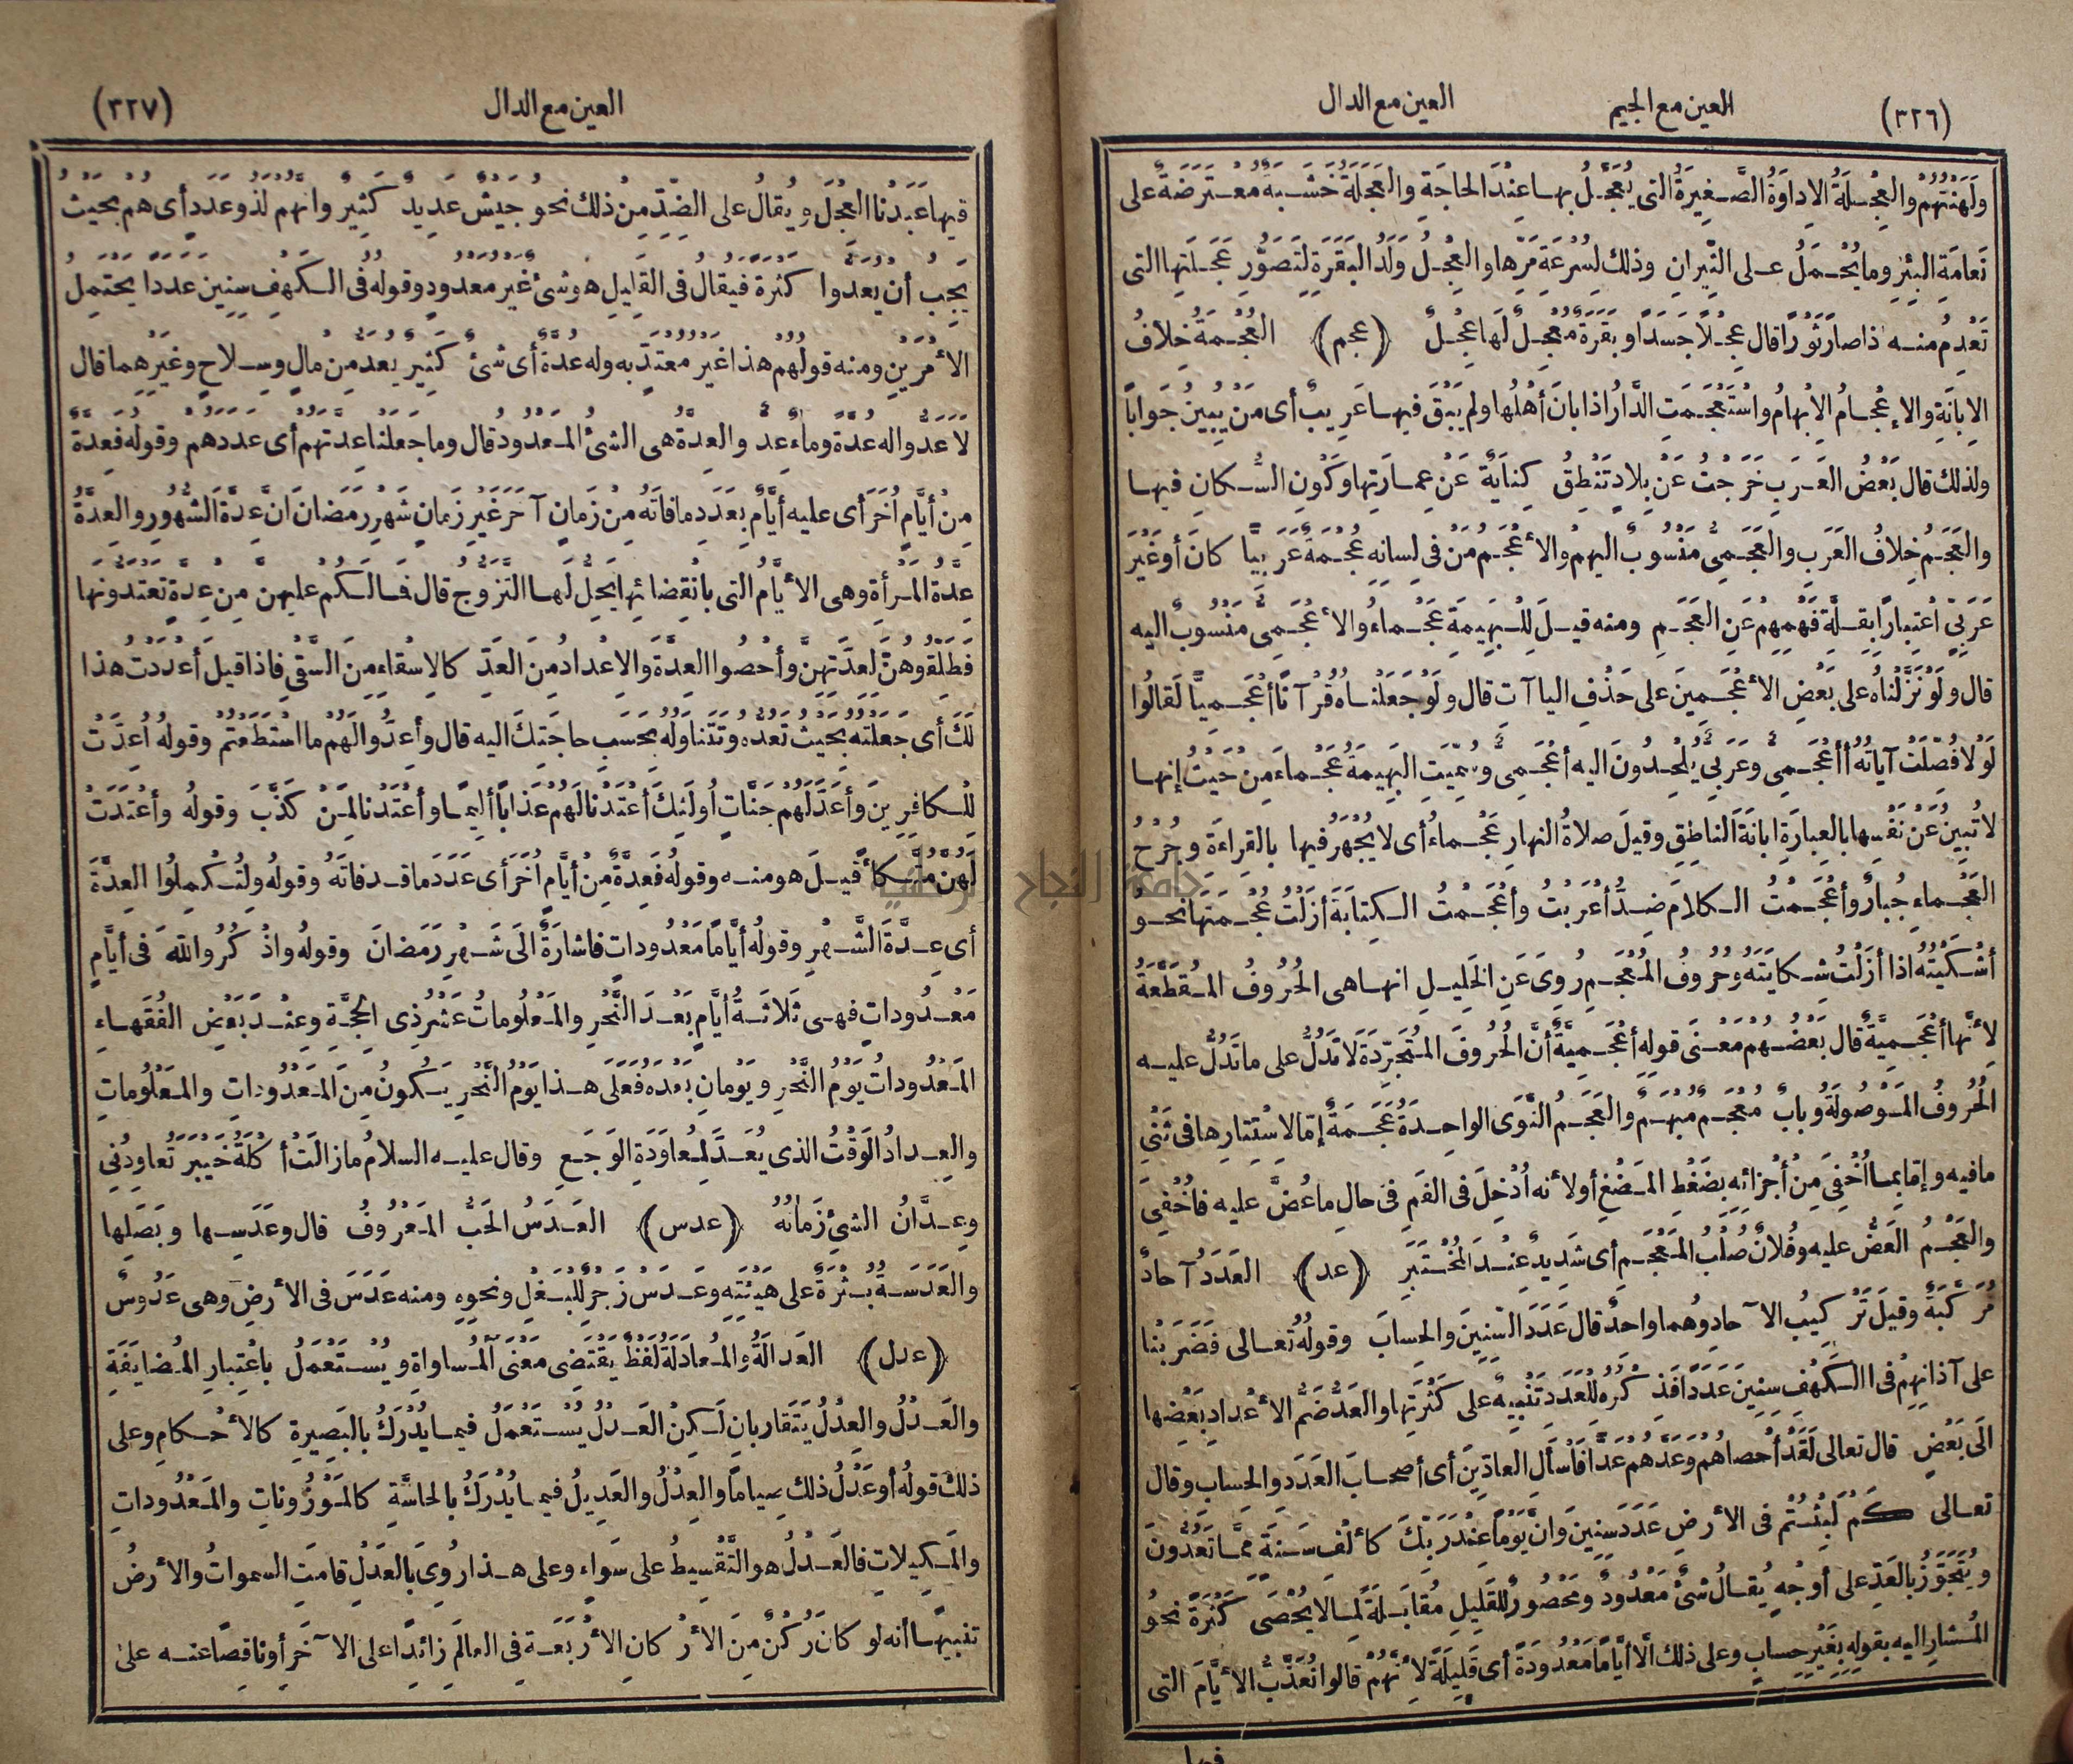 (٣٢٦) العين مع الجيم العين مع الدال
ولَهَنْتَهُمْ والعِجْلَةُ الاِداوَةُ الصَّغِيرَةُ التى يُعَجَّلُ بها عِنْدَ الحاجَةِ والعَجَلَةُ خَشَبَةٌ مُعْتَرِضَةٌ على
نَعامَةِ البِئْرِ وما يُحْمَلُ على الثِّيرانِ وذلك لِسُرْعَةِ مَرِّها والعِجْلُ وَلَدُ البَقَرَةِ لِتَصَوُّرِ عَجَلَتِها التى
تَعْدَمُ منه اذا صارَ ثَوْرًا قال عِجْلًا جَسَدًا وبَقَرَةٌ مُعْجِلٌ لَها عِجْلٌ (عجم) العُجْمَةُ خِلافُ
الاِبانَةِ والاِعْجامُ الاِبْهامُ واسْتَعْجَمَتِ الدَّارُ اذا بانَ أهْلُها ولم يَبْقَ فيها عَرِيبٌ أى مَنْ يُبِينُ جَوابًا
ولذلك قال بَعْضُ العَرَبِ خَرَجْتُ عَنْ بِلادٍ تَنْطِقُ كِنايَةً عَنْ عِمارَتِها وَكَوْنِ السُّكانِ فيها
والعَجَمُ خِلافُ العَرَبِ والعَجَمِىُّ مَنْسُوبٌ اليهِمْ والأعْجَمُ مَنْ فى لِسانِهِ عُجْمَةٌ عَرَبِيًّا كانَ أوغَيْرَ
عَرَبِىٍّ اعْتِبارًا بِقِلَّةِ فَهْمِهِمْ عَنِ العَجَمِ ومنه قيلَ لِلْبَهِيمَةِ عَجْماءُ والأعْجَمِىُّ مَنْسُوبٌ اليه
قال ولَوْ نَزَّلْناهُ على بَعْضِ الأعْجَمِينَ على حَذْفِ الياآت قال ولَوْ جَعَلْناهُ قُرْآنًا أعْجَمِيًّا لَقالُوا
لَوْلا فُصِّلَتْ آياتُهُ أأعْجَمِىٌّ وعَرَبِىٌّ يُلْحِدُونَ اليه أعْجَمِىٌّ وسُمِّيَتِ البَهِيمَةُ عَجْماءَ مِنْ حَيْثُ إنها
لا تُبِينُ عَنْ نَفْسِها بالعِبارَةِ ابانَةَ الناطِقِ وقيلَ صلاةُ النهارِ عَجْماءُ أى لا يُجْهَرُ فيها بالقِراءَةِ وجُرْحُ
العَجْماءِ جُبارٌ وأعْجَمْتُ الكلامَ ضِدُّ أعْرَبْتُ وأعْجَمْتُ الكِتابَةَ أزَلْتُ عُجْمَتَها نحو
أشْكَيْتُهُ اذا أزَلْتُ شِكايَتَهُ وحُرُوفُ المُعْجَمِ رُوِىَ عَنِ الخَلِيلِ انها هى الحُرُوفُ المُقَطَّعَةُ
لأنَّها أعْجَمِيَّةٌ قال بَعْضُهُمْ مَعْنَى قولِهِ أعْجَمِيَّةٌ أنَّ الحُرُوفَ المُتَجَرِّدَةَ لا تَدُلُّ على ما تَدُلُّ عليه
الحُرُوفُ المَوْصُولَةُ وبابٌ مُعْجَمٌ مُبْهَمٌ والعَجَمُ النَّوَى الواحِدَةُ عَجَمَةٌ إمّا لاسْتِتارِها فى ثَنْىِ
مافيه وإمّا بما أُخْفِىَ مِنْ أجْزائِهِ بِضَغْطِ المَضْغِ أولأنه أُدْخِلَ فى الفَمِ فى حالِ ما عُضَّ عليه فأُخْفِىَ
والعَجْمُ العَضُّ عليه وفُلانٌ صُلْبُ المَعْجَمِ أى شَدِيدٌ عِنْدَ المُخْتَبَرِ (عد) العَدَدُ آحادٌ
مُرَكَّبَةٌ وقيلَ تَرْكِيبُ الآحادِ وهُما واحِدٌ قال عَدَدَ السِّنِينَ والحِسابَ وقولُهُ تعالى فَضَرَبْنا
على آذانِهِمْ فى الكَهْفِ سِنِينَ عَدَدًا فَذِكْرُهُ لِلْعَدَدِ تَنْبِيهٌ على كَثْرَتِها والعَدُّ ضَمُّ الأعْدادِ بَعْضِها
الَى بَعْضٍ قال تعالى لَقَدْ أحْصاهُمْ وعَدَّهُمْ عَدًّا فَاسْألِ العادِّينَ أى أصحابَ العَدَدِ والحِسابِ وقال
تعالى كَمْ لَبِثْتُمْ فى الأرضِ عَدَدَ سِنِينَ وَانَّ يَوْمًا عِنْدَ رَبِّكَ كألْفِ سَنَةٍ مِمَّا تَعُدُّونَ
ويُتَجَوَّزُ بالعَدِّ على أوجُهٍ يُقالُ شئٌ مَعْدُودٌ ومَحْصُورٌ لِلْقَلِيلِ مُقابَلَةً لِمَا لا يُحْصَى كَثْرَةً نحوُ
المُشارِ اليه بقولِهِ بِغَيْرِ حِسابٍ وعلى ذلك الَّا أيَّامًا مَعْدُودَةً أى قَلِيلَةً لأنَّهُمْ قالوا نُعَذَّبُ الأيَّامَ التى
العين مع الدال (٣٢٧)
فيها عَبَدْنا العِجْلَ ويُقالُ على الضِّدِّ مِنْ ذلك نحوُ جَيْشٌ عَدِيدٌ كَثِيرٌ وانَّهُمْ لَذُو عَدَدٍ أى هُمْ بحيثُ
يَجِبُ أنْ يُعَدُّوا كَثْرَةً فيقالُ فى القَلِيلِ هو شئٌ غَيْرُ معدودٍ وقولُه فى الكهفِ سِنِينَ عَدَدًا يَحْتَمِلُ
الأمْرَيْنِ ومنه قولُهم هذا غيرُ مُعْتَدٍّ به وله عُدَّةٌ أى شئٌ كَثِيرٌ يُعَدُّ مِنْ مالٍ وسِلاحٍ وغَيْرِهما قال
لأعَدُّوا له عُدَّةً وماءٌ عِدٌّ والعِدَّةُ هى الشئُ المَعْدُودُ قال وما جعلْنا عِدَّتَهم أى عددَهم وقوله فعِدَّةٌ
مِنْ أيَّامٍ أُخَرَ أى عليه أيَّامٌ بِعَدَدِ ما فاتَهُ مِنْ زَمانٍ آخَرَ غَيْرِ زَمانِ شَهْرِ رَمَضانَ انَّ عِدَّةَ الشُّهُورِ والعِدَّةُ
عِدَّةُ المَرْأةِ وهى الأيَّامُ التى بانْقِضائِها يَحِلُّ لَها التَّزَوُّجُ قال فَمَا لَكُمْ عليهنَّ مِنْ عِدَّةٍ تَعْتَدُّونَها
فَطَلِّقُوهُنَّ لعِدَّتِهِنَّ وأحْصُوا العِدَّةَ والاِعْدادُ مِنَ العَدِّ كالاِسْقاءِ مِنَ السَّقْىِ فاذا قيلَ أعْدَدْتُ هذا
لَكَ أى جَعَلْتُه بحَيْثُ تَعُدُّه وتَتَناوَلُه بحَسَبِ حاجَتِكَ اليه قال وأعِدُّوا لَهُمْ ما اسْتَطَعْتُمْ وقولُه أُعِدَّتْ
لِلْكافِرِينَ وأعَدَّ لَهُمْ جَنَّاتٍ أُولَئِكَ أعْتَدْنا لَهُمْ عَذابًا ألِيمًا وأعْتَدْنا لِمَنْ كَذَّبَ وقولُه وأعْتَدَتْ
لَهُنَّ مُتَّكَأً قيلَ هو منه وقولُه فَعِدَّةٌ مِنْ أيَّامٍ أُخَرَ أى عَدَدَ ما قد فاتَهُ وقولُه ولِتُكْمِلُوا العِدَّةَ
أى عِدَّةَ الشَّهْرِ وقولُه أيَّامًا مَعْدُوداتٍ فاشارَةٌ الَى شَهْرِ رَمَضانَ وقولُه واذْكُرُوا اللّهَ فى أيَّامٍ
مَعْدُوداتٍ فهى ثَلاثَةُ أيَّامٍ بَعْدَ النَّحْرِ والمَعْلُوماتُ عَشْرُ ذى الحِجَّةِ وعِنْدَ بَعْضِ الفُقَهاءِ
المَعْدُوداتُ يَوْمُ النَّحْرِ ويَوْمانِ بَعْدَهُ فَعَلَى هذا يَوْمُ النَّحْرِ يَكُونُ مِنَ المَعْدُوداتِ والمَعْلُوماتِ
والعِدادُ الوَقْتُ الذى يُعَدُّ لِمُعاوَدَةِ الوَجَعِ وقال عليه السلامُ ما زالَتْ أُكْلَةُ خَيْبَرَ تُعاوِدُنِى
وعِدَّانُ الشئِ زَمَانُهُ (عدس) العَدَسُ الحَبُّ المَعْرُوفُ قال وعَدَسِها وبَصَلِها
والعَدَسَةُ بَثْرَةٌ على هَيْئَتِهِ وعَدَسْ زَجْرٌ لِلْبَغْلِ ونحوِهِ ومنه عَدَسَ فى الأرضِ وهى عَدُوسٌ
(عدل) العَدالَةُ والمُعادَلَةُ لَفْظٌ يَقْتَضِى مَعْنَى المُساواةِ ويُسْتَعْمَلُ باعْتِبارِ المُضايَفَةِ
والعَدْلُ والعِدْلُ يَتَقارَبانِ لَكِنِ العَدْلُ يُسْتَعْمَلُ فيما يُدْرَكُ بالبَصِيرَةِ كالأحْكامِ وعلى
ذلك قولُهُ أوعَدْلُ ذلك صِيامًا والعِدْلُ والعَدِيلُ فيما يُدْرَكُ بالحاسَّةِ كالمَوْزُوناتِ والمَعْدُوداتِ
والمَكِيلاتِ فالعَدْلُ هو التَّقْسِيطُ على سَواءٍ وعلى هذا رُوِىَ بالعَدْلِ قامَتِ السمواتُ والأرضُ
تنبيهًا أنه لو كانَ رُكْنٌ مِنَ الأرْكانِ الأرْبَعَةِ فى العالَمِ زائِدًا على الآخَرِ أو ناقِصًا عنه على
جامعة النجاح الوطنية